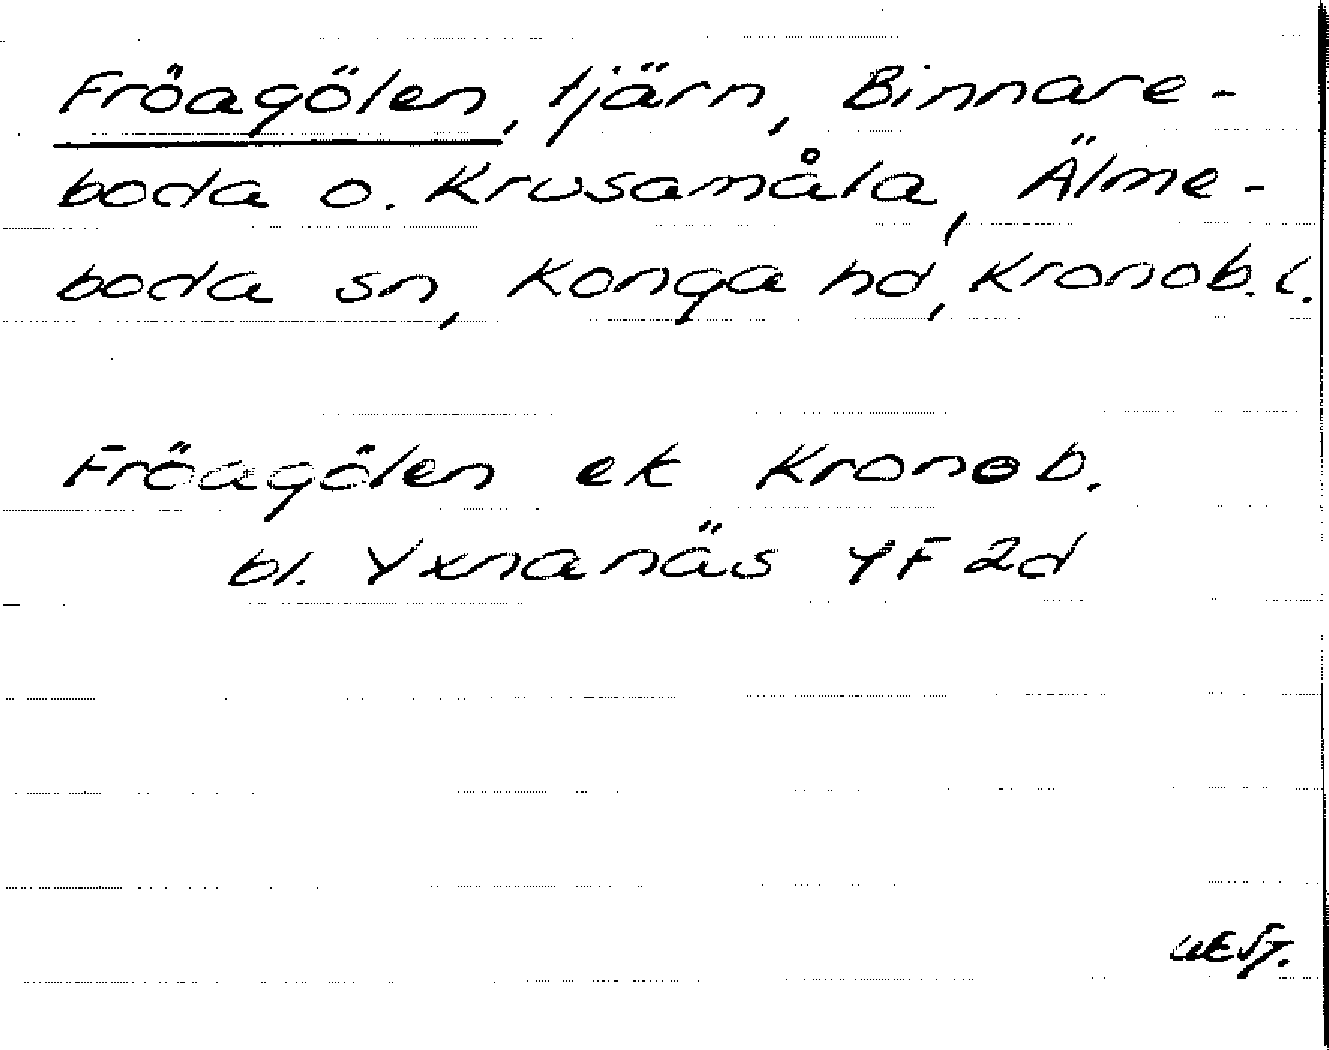 Fröagölen, tjärn, Binnare-
boda o. Krusamåla, Älme-
boda sn, Konga hd, Kronob. l.
Fröagölen ek Kronob.
bl. Yxnanäs 4F 2d